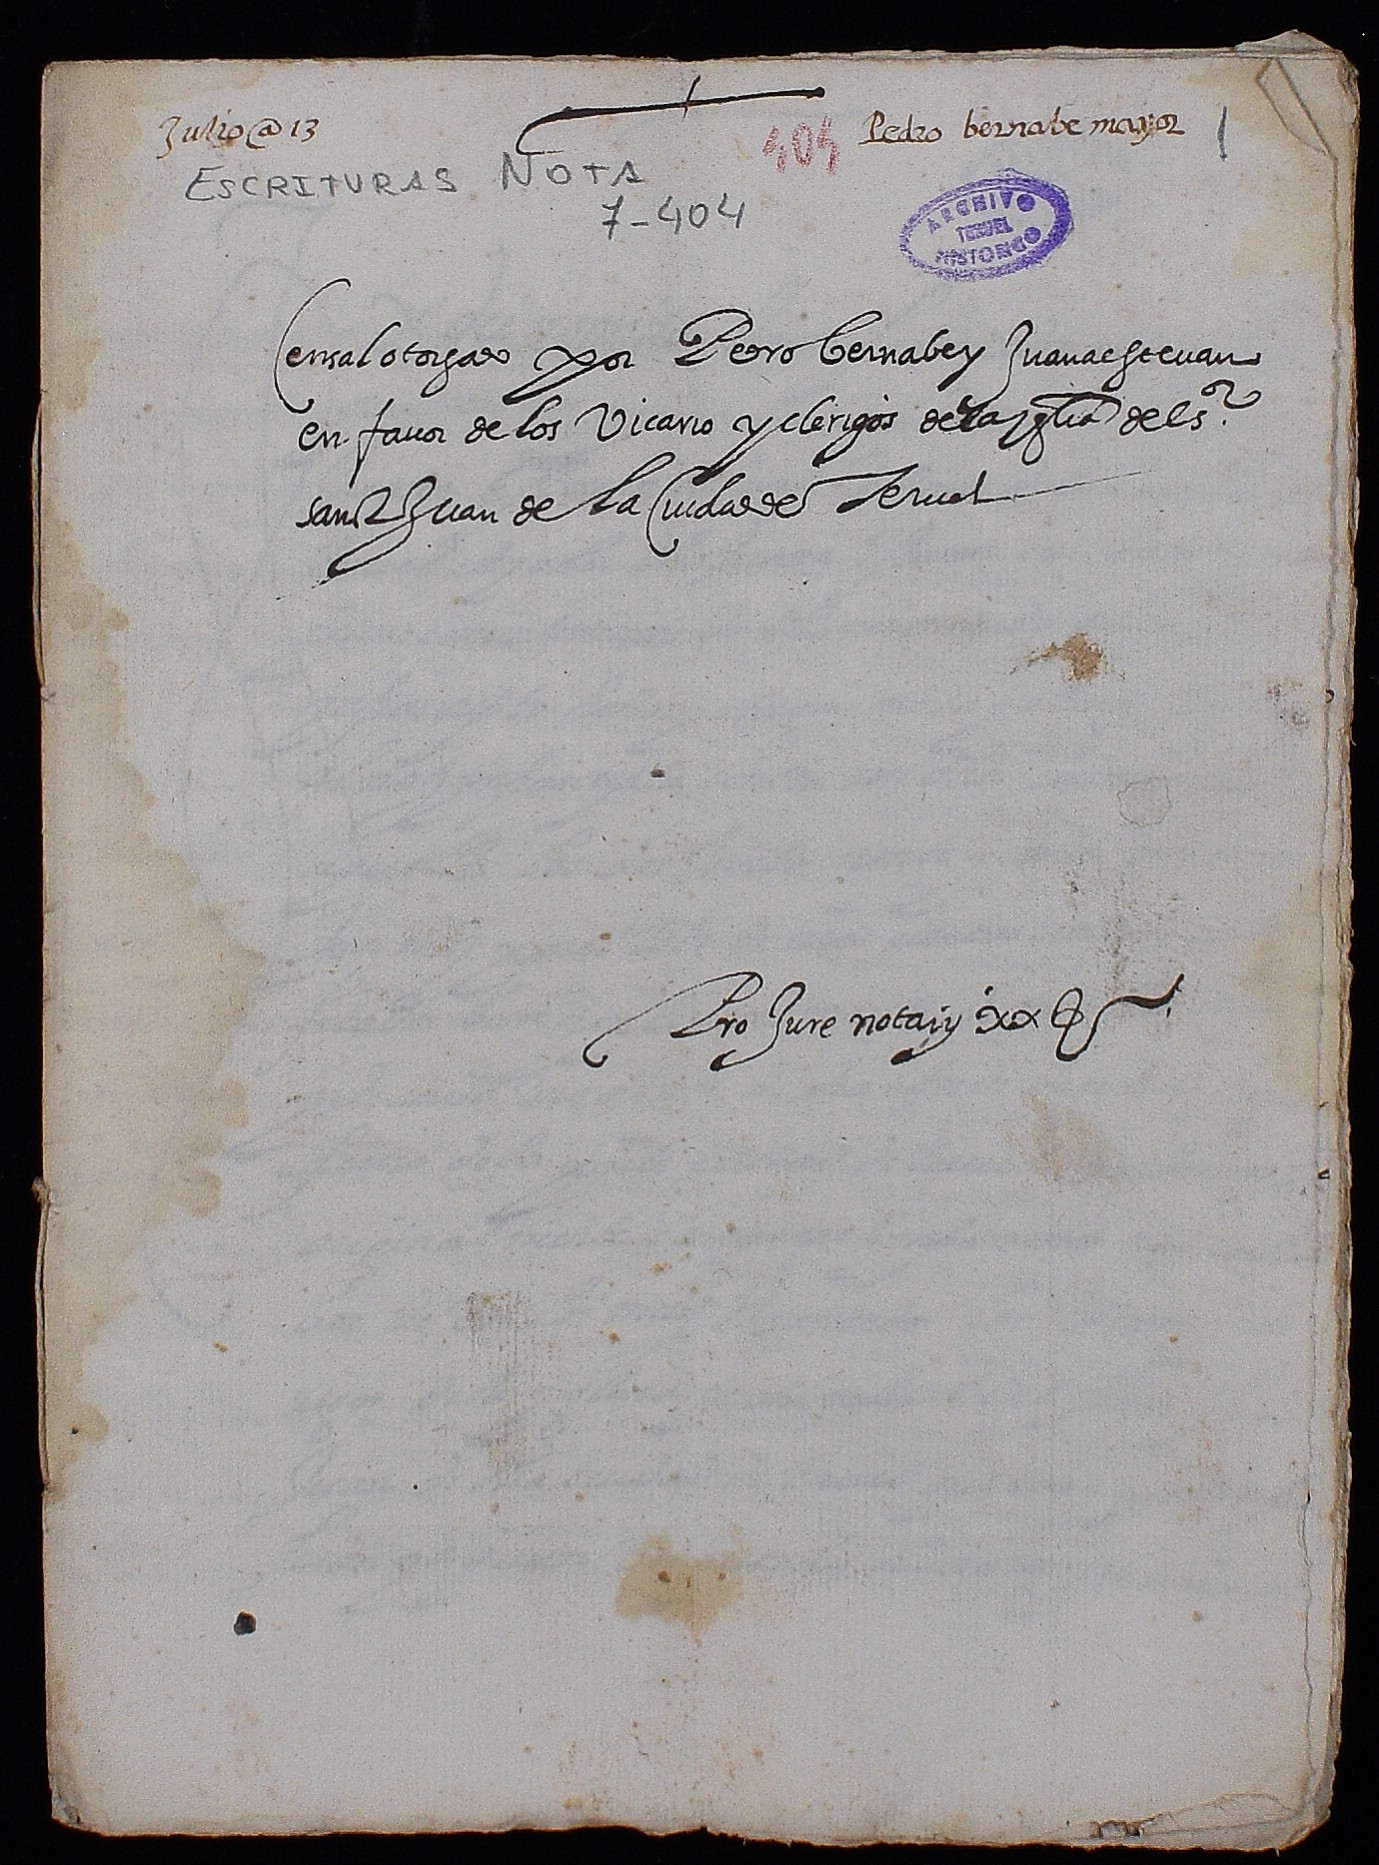 Julio @ 13
404 Pedro bernabe mayor 1
ESCRITURAS NOTA
7-404
ARCHIVO
TERUEL
HISTORICO
Censal otorgado por Pedro bernabe y Juana esteuan
en fauor de los Vicario y clerigos de la yglia del sor.
sanct Juan de la Ciudad de Teruel
Pro Jure notarij xx